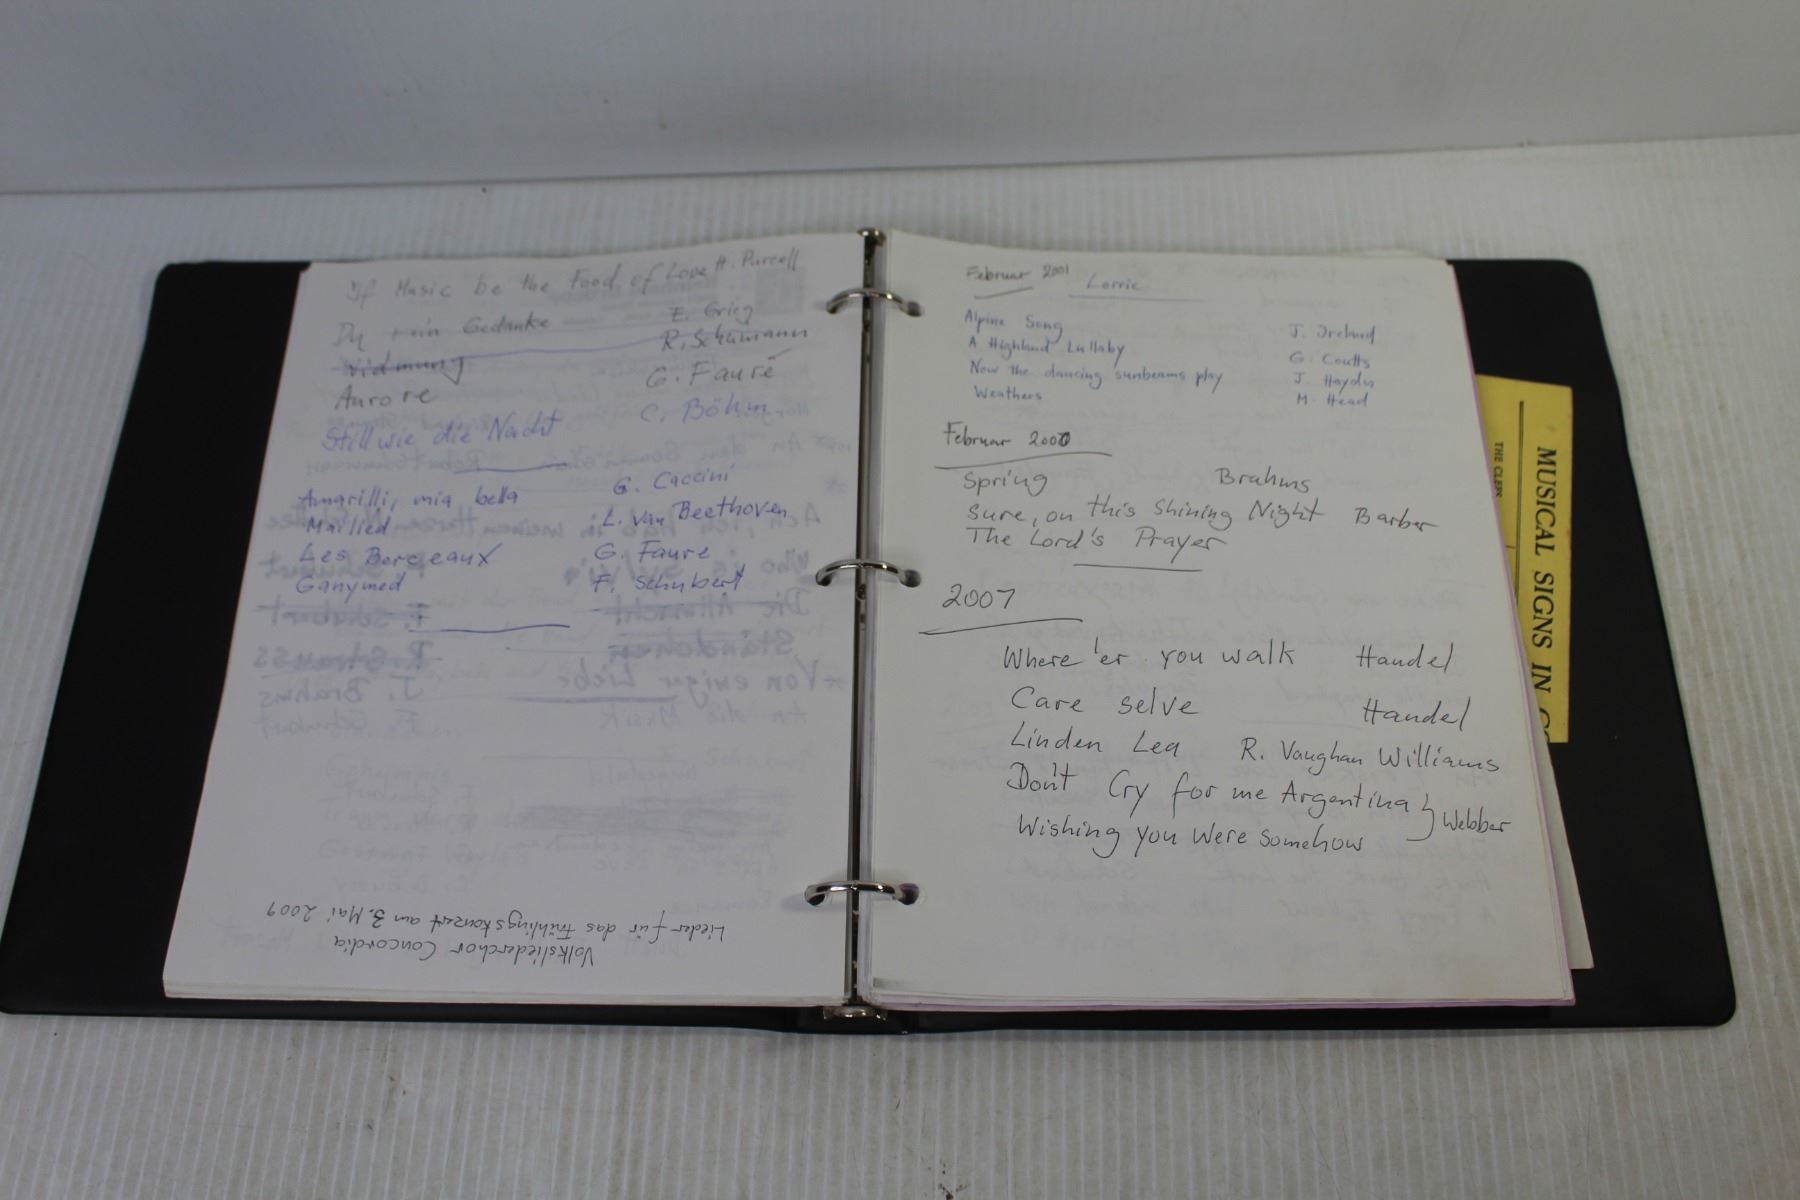 If Music be the Food of Love H. Purcell
Du mein Gedanke E. Grieg
Widmung R. Schumann
Aurore G. Fauré
Still wie die Nacht C. Böhm
Amarilli, mia bella G. Caccini
Mailied L. van Beethoven
Les Berceaux G. Faure
Ganymed F. Schubert
Volksliederchor Concordia
Lieder für das Frühlingskonzert am 3. Mai 2009
Februar 2001 Lorrie
Alpine Song J. Ireland
A Highland Lullaby G. Coutts
Now the dancing sunbeams play J. Haydn
Weathers M. Head
Februar 2000
Spring Brahms
Sure, on this Shining Night Barber
The Lord's Prayer
2007
Where 'er you walk Handel
Care selve Handel
Linden Lea R. Vaughan Williams
Don't Cry for me Argentina } Webber
Wishing you Were somehow
MUSICAL SIGNS IN
THE CLEFS